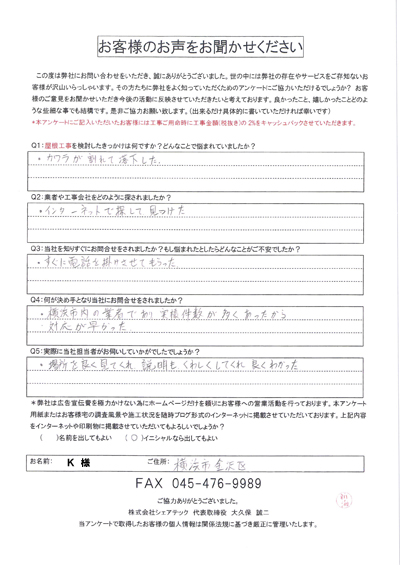 お客様のお声をお聞かせください
この度は弊社にお問い合わせをいただき、誠にありがとうございました。世の中には弊社の存在やサービスをご存知ないお
客様が沢山いらっしゃいます。その方たちに弊社をよく知っていただくためのアンケートにご協力いただけるでしょうか? お客
様のご意見をお聞かせいただき今後の活動に反映させていただきたいと考えております。良かったこと、嬉しかったことどのよ
うな些細な事でも結構です。是非ご協力お願い致します。(出来るだけ具体的に書いていただければ幸いです)
*本アンケートにご記入いただいたお客様には工事ご用命時に工事金額(税抜き)の2%をキャッシュバックさせていただきます。
Q1:屋根工事を検討したきっかけは何ですか?どんなことで悩まれていましたか?
・カワラが割れて落下した.
Q2:業者や工事会社をどのように探されましたか?
・インターネットで探して見つけた
Q3:当社を知りすぐにお問合せをされましたか?もし悩まれたとしたらどんなことがご不安でしたか?
・すぐに電話を掛けさせてもらった.
Q4:何が決め手となり当社にお問合せをされましたか?
・横浜市内の業者であり実績件数が多くあったから
対応が早かった.
Q5:実際に当社担当者がお伺いしていかがでしたでしょうか?
・場所を良く見てくれ 説明も くわしくしてくれ 良くわかった
*弊社は広告宣伝費を極力かけない為にホームページだけを頼りにお客様への営業活動を行っております。本アンケート
用紙またはお客様宅の調査風景や施工状況を随時ブログ形式のインターネットに掲載させていただいております。上記内容
をインターネットや印刷物に掲載させていただいてもよろしいでしょうか?
( )名前を出してもよい (○)イニシャルなら出してもよい
お名前: K 様 ご住所: 横浜市金沢区
FAX 045-476-9989
ご協力ありがとうございました。
株式会社シェアテック 代表取締役 大久保 誠二
当アンケートで取得したお客様の個人情報は関係法規に基づき厳正に管理いたします。